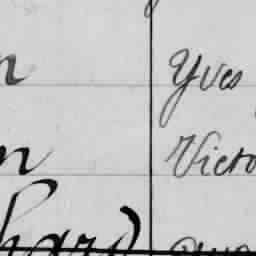 n Yves
n Victo
hard